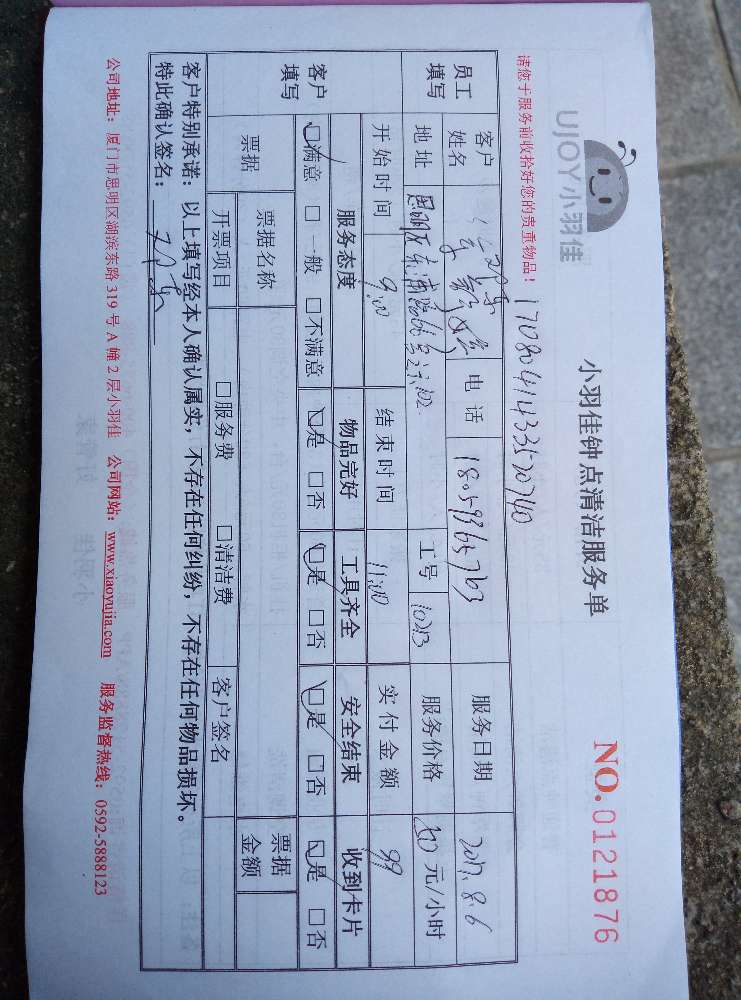 UJOY小羽佳
小羽佳钟点清洁服务单
NO.0121876
请您于服务前收拾好您的贵重物品！ 170804143352070740
员工填写 客户姓名 电话 18059365763 服务日期 2017.8.6
地址 思明区 工号 10213 服务价格 50元/小时
开始时间 9:00 结束时间 11:00 实付金额 99
客户填写 服务态度 物品完好 工具齐全 安全结束 收到卡片
□满意 □一般 □不满意 □是 □否 □是 □否 □是 □否 □是 □否
票据 票据名称 票据金额
开票项目 □服务费 □清洁费 客户签名
客户特别承诺：以上填写经本人确认属实，不存在任何纠纷，不存在任何物品损坏。
特此确认签名：
公司地址：厦门市思明区湖滨东路 319 号 A 幢 2 层小羽佳 公司网站：www.xiaoyujia.com 服务监督热线：0592-5888123